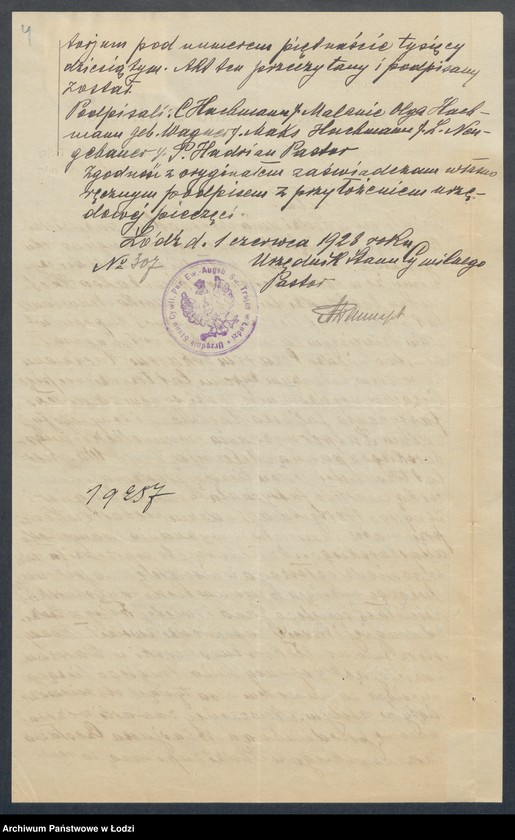 4
torjum pod numerem piętnaście tysięcy
dziesiątym. Akt ten przeczytany i podpisany
został.
Podpisali: C Hachmann /. Malanie Olga Hach-
mann geb. Wagner /. Maks Hachmann /. L. Neu-
gebauer /. P. Hadrian Pastor
Zgodność z oryginałem zaświadczam własno
ręcznym podpisem z przyłożeniem urzę-
dowej pieczęci.
Łódź d. 1 czerwca 1928 roku
№ 307
Urzędnik Stanu Cywilnego
Pastor
Urzędnik Stanu Cywil. Par. Ew.-Augsb. Św. Trójcy w Łodzi
19257
Archiwum Państwowe w Łodzi